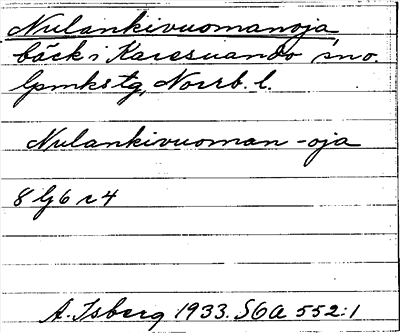 Nulankivuomanoja,
bäck i Karesuando sno.
lpmkstg, Norrb. l.
Nulankivuoman-oja
8 lj 6 r 4
A. Isberg 1933. SOA 552:1